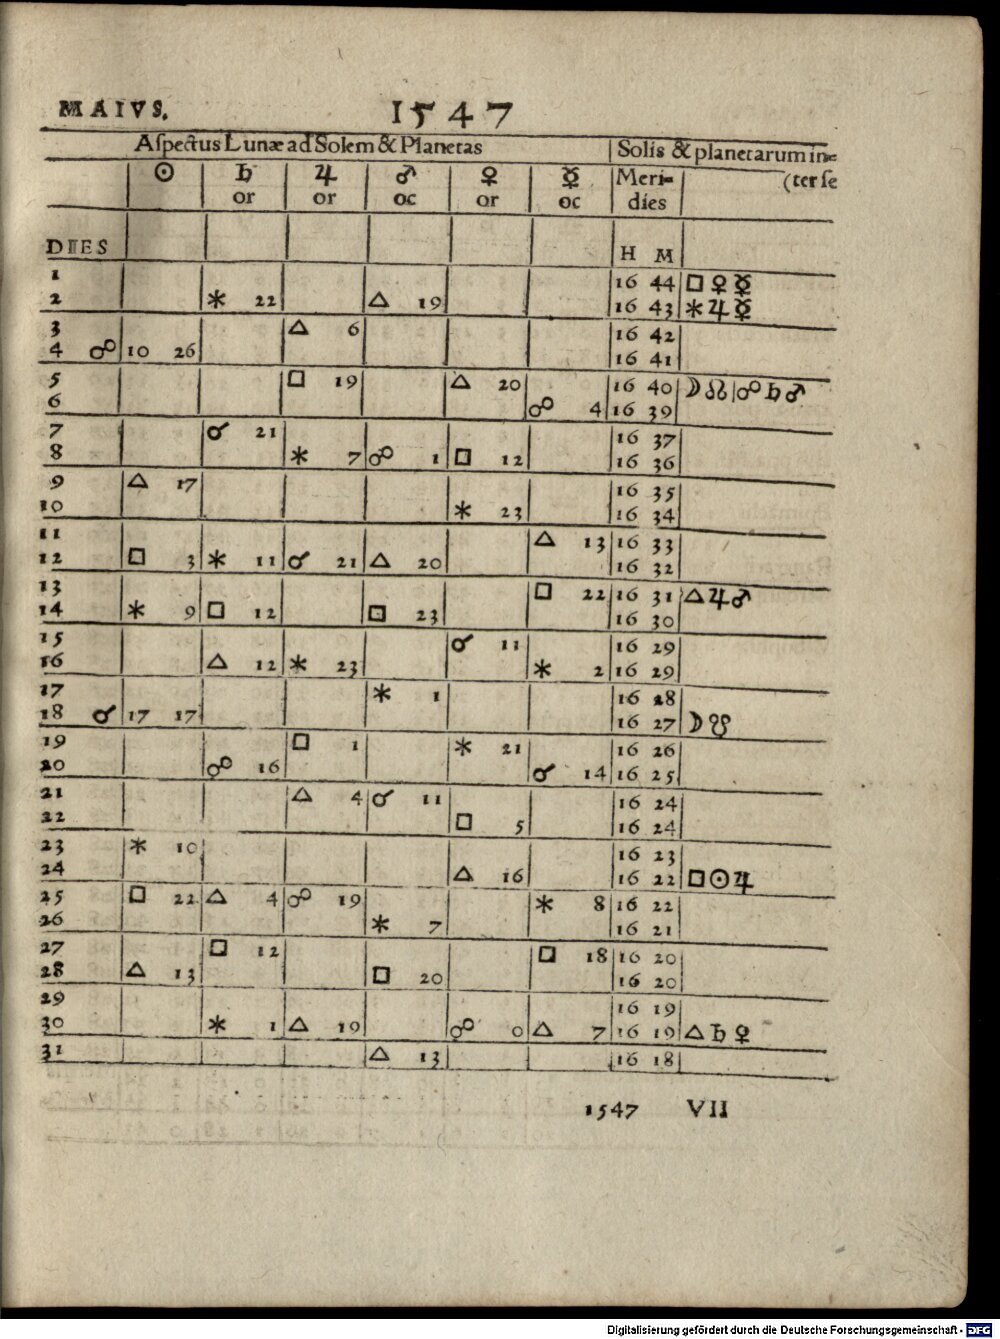 MAIVS. 1547
Aſpectus Lunæ ad Solem & Planetas Solis & planetarum in=
☉ ♄ ♃ ♂ ♀ ☿ Meri= (ter ſe
or or oc or oc dies
DIES H M
1 16 44 □ ♀ ☿
2 ✶ 22 △ 19 16 43 ✶ ♃ ☿
3 △ 6 16 42
4 ☍ 10 26 16 41
5 □ 19 △ 20 16 40 ☽ ☊ | ☍ ♄ ♂
6 ☍ 4 16 39
7 ☌ 21 16 37
8 ✶ 7 ☍ 1 □ 12 16 36
9 △ 17 16 35
10 ✶ 23 16 34
11 △ 13 16 33
12 □ 3 ✶ 11 ☌ 21 △ 20 16 32
13 □ 22 16 31 △ ♃ ♂
14 ✶ 9 □ 12 □ 23 16 30
15 ☌ 11 16 29
16 △ 12 ✶ 23 ✶ 2 16 29
17 ✶ 1 16 28
18 ☌ 17 17 16 27 ☽ ☋
19 □ 1 ✶ 21 16 26
20 ☍ 16 ☌ 14 16 25
21 △ 4 ☌ 11 16 24
22 □ 5 16 24
23 ✶ 10 16 23
24 △ 16 16 22 □ ☉ ♃
25 □ 22 △ 4 ☍ 19 ✶ 8 16 22
26 ✶ 7 16 21
27 □ 12 □ 18 16 20
28 △ 13 □ 20 16 20
29 16 19
30 ✶ 1 △ 19 ☍ 0 △ 7 16 19 △ ♄ ♀
31 △ 13 16 18
1547 VII
Digitalisierung gefördert durch die Deutsche Forschungsgemeinschaft - DFG